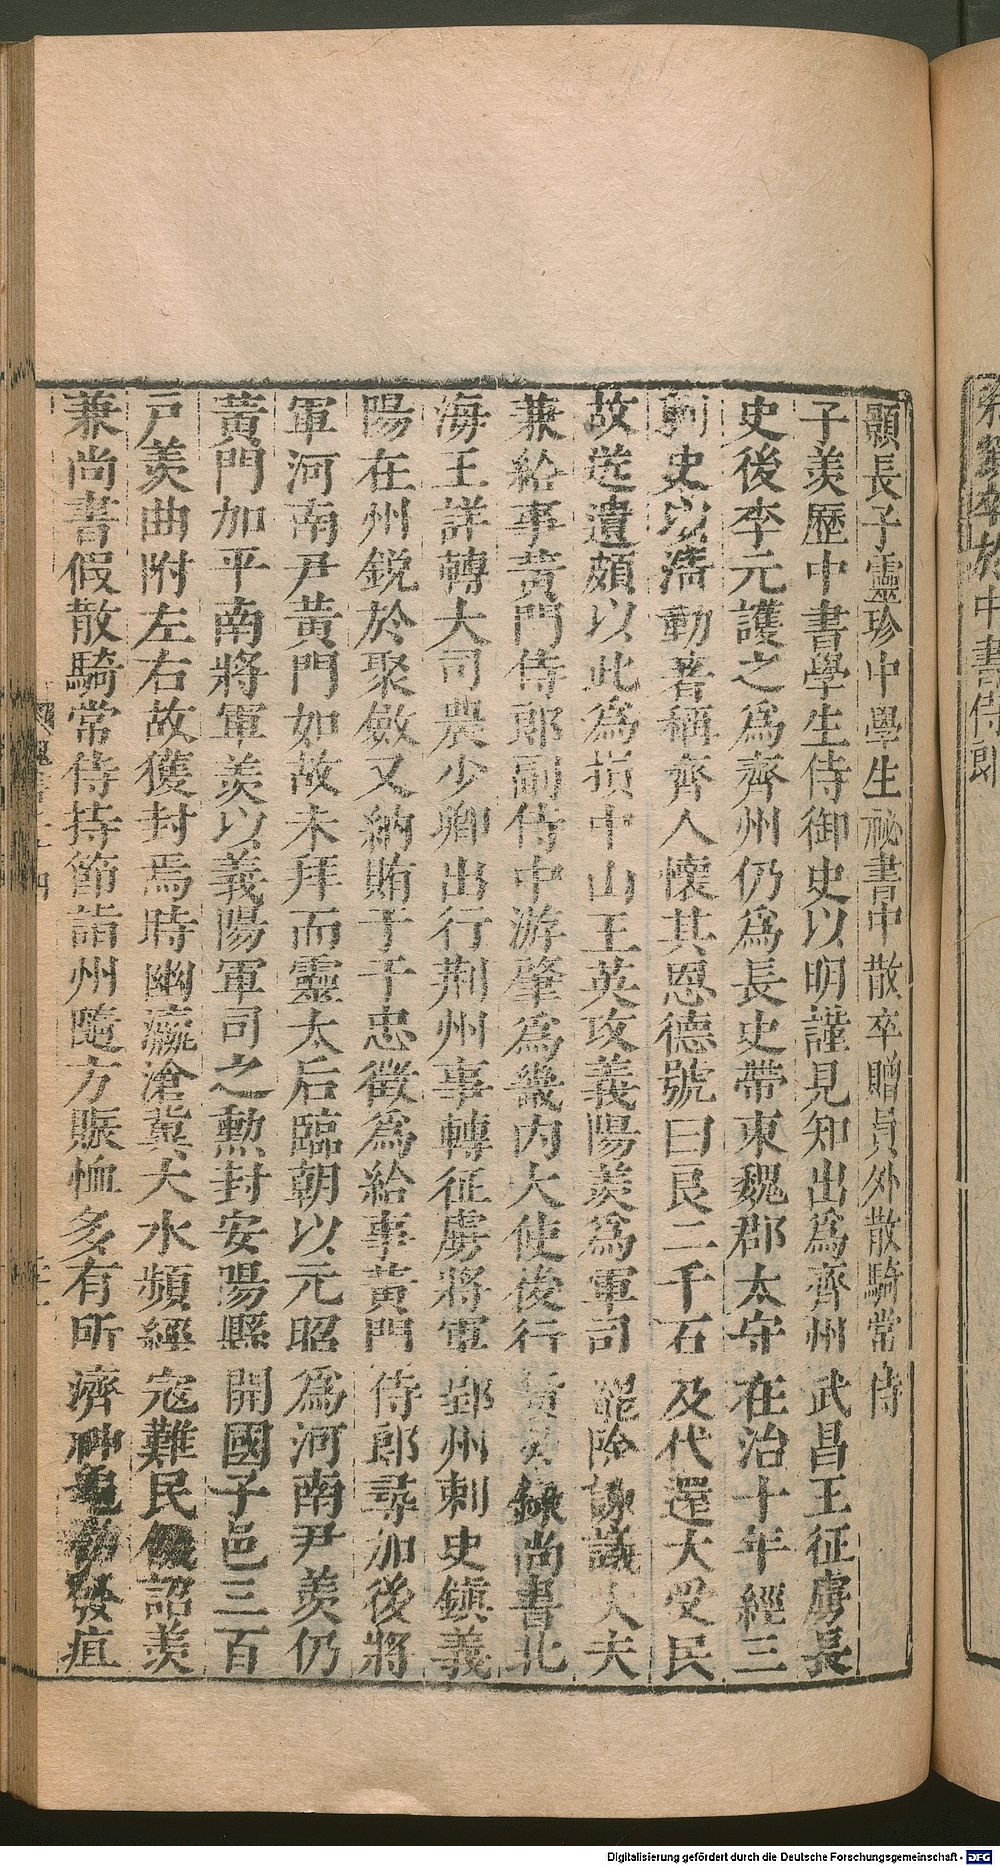 顥長子靈珍中學生祕書中散卒贈員外散騎常侍
子羨歷中書學生侍御史以明謹見知出為齊州武昌王征虜長
史後李元護之為齊州仍為長史帶東魏郡太守在治十年經三
刺史以清勤著稱齊人懷其恩德號曰良二千石及代還大受民
故送遺頗以此為損中山王英攻義陽羨為軍司罷除諫議大夫
兼給事黃門侍郎副侍中游肇為畿內大使後行尚書北
海王詳轉大司農少卿出行荆州事轉征虜將軍郢州刺史鎮義
陽在州銳於聚斂又納賄于于忠徵為給事黃門侍郎尋加後將
軍河南尹黃門如故未拜而靈太后臨朝以元昭為河南尹羨仍
黃門加平南將軍羨以義陽軍司之勲封安陽縣開國子邑三百
戶羨曲附左右故獲封焉時幽瀛滄冀大水頻經寇難民飢詔羨
兼尚書假散騎常侍持節詣州隨方賑恤多有所濟神龜初發疽
中書侍郎
Digitalisierung gefördert durch die Deutsche Forschungsgemeinschaft - DFG